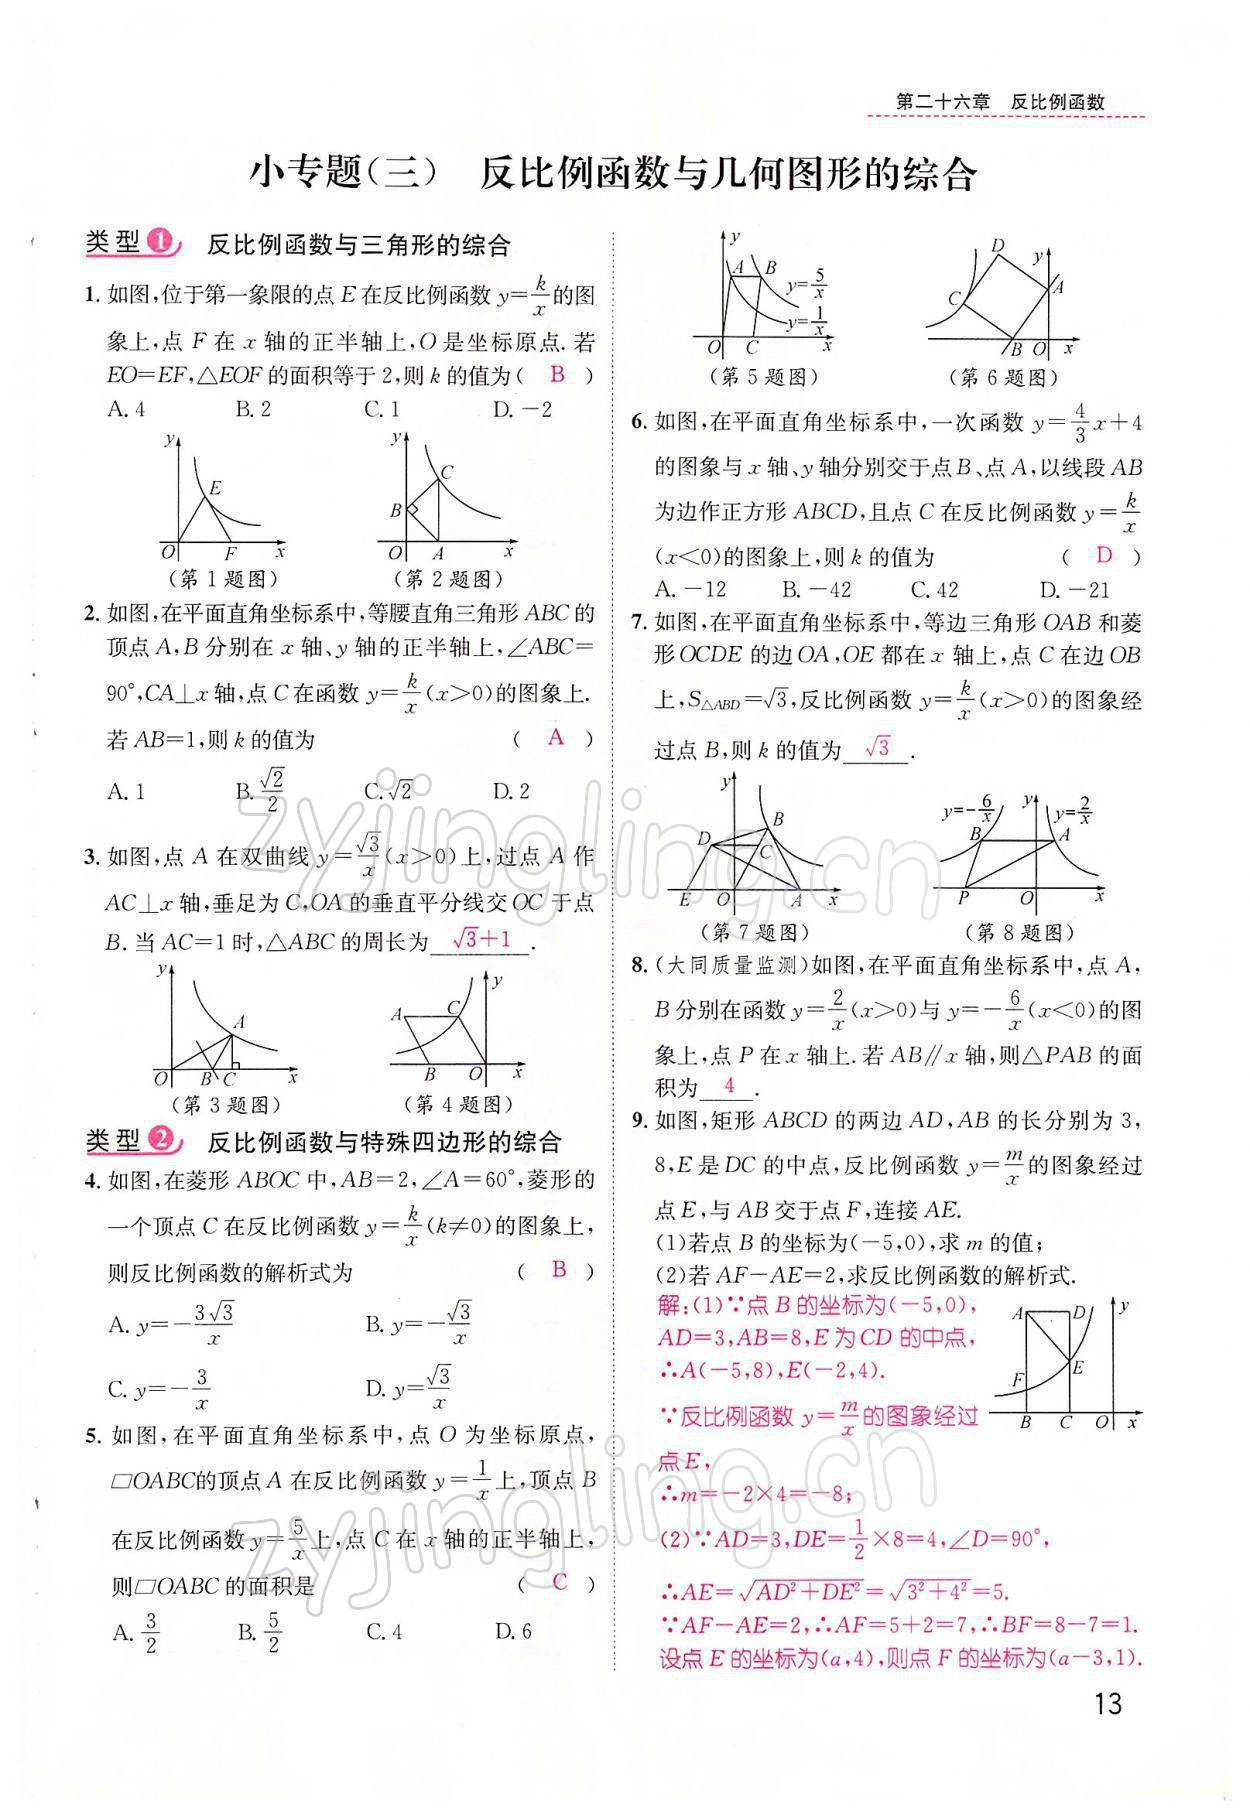 第二十六章　反比例函数
小专题(三)　反比例函数与几何图形的综合
类型1　反比例函数与三角形的综合
1. 如图,位于第一象限的点 E 在反比例函数 y=k/x 的图
象上,点 F 在 x 轴的正半轴上,O 是坐标原点. 若
EO=EF,△EOF 的面积等于 2,则 k 的值为( B )
A. 4　B. 2　C. 1　D. -2
y E O F x
y C B O A x
(第 1 题图)　(第 2 题图)
2. 如图,在平面直角坐标系中,等腰直角三角形 ABC 的
顶点 A,B 分别在 x 轴、y 轴的正半轴上,∠ABC=
90°,CA⊥x 轴,点 C 在函数 y=k/x(x>0)的图象上.
若 AB=1,则 k 的值为 ( A )
A. 1　B. √2/2　C. √2　D. 2
3. 如图,点 A 在双曲线 y=√3/x(x>0)上,过点 A 作
AC⊥x 轴,垂足为 C,OA 的垂直平分线交 OC 于点
B. 当 AC=1 时,△ABC 的周长为 √3+1 .
y A O B C x
A C y B O x
(第 3 题图)　(第 4 题图)
类型2　反比例函数与特殊四边形的综合
4. 如图,在菱形 ABOC 中,AB=2,∠A=60°,菱形的
一个顶点 C 在反比例函数 y=k/x(k≠0)的图象上,
则反比例函数的解析式为 ( B )
A. y=-3√3/x　B. y=-√3/x
C. y=-3/x　D. y=√3/x
5. 如图,在平面直角坐标系中,点 O 为坐标原点,
▱OABC的顶点 A 在反比例函数 y=1/x 上,顶点 B
在反比例函数 y=5/x 上,点 C 在 x 轴的正半轴上,
则▱OABC 的面积是 ( C )
A. 3/2　B. 5/2　C. 4　D. 6
y A B y=5/x y=1/x O C x
D y C A B O x
(第 5 题图)　(第 6 题图)
6. 如图,在平面直角坐标系中,一次函数 y=4/3x+4
的图象与 x 轴、y 轴分别交于点 B、点 A,以线段 AB
为边作正方形 ABCD,且点 C 在反比例函数 y=k/x
(x<0)的图象上,则 k 的值为 ( D )
A. -12　B. -42　C. 42　D. -21
7. 如图,在平面直角坐标系中,等边三角形 OAB 和菱
形 OCDE 的边 OA,OE 都在 x 轴上,点 C 在边 OB
上,S△ABD=√3,反比例函数 y=k/x(x>0)的图象经
过点 B,则 k 的值为 √3 .
y B D C E O A x
y=-6/x y y=2/x B A P O x
(第 7 题图)　(第 8 题图)
8. (大同质量监测)如图,在平面直角坐标系中,点 A,
B 分别在函数 y=2/x(x>0)与 y=-6/x(x<0)的图
象上,点 P 在 x 轴上. 若 AB∥x 轴,则△PAB 的面
积为 4 .
9. 如图,矩形 ABCD 的两边 AD,AB 的长分别为 3,
8,E 是 DC 的中点,反比例函数 y=m/x的图象经过
点 E,与 AB 交于点 F,连接 AE.
(1)若点 B 的坐标为(-5,0),求 m 的值;
(2)若 AF-AE=2,求反比例函数的解析式.
解:(1)∵点 B 的坐标为(-5,0),
AD=3,AB=8,E 为 CD 的中点,
∴A(-5,8),E(-2,4).
∵反比例函数 y=m/x的图象经过
点 E,
∴m=-2×4=-8;
A D y E F B C O x
(2)∵AD=3,DE=1/2×8=4,∠D=90°,
∴AE=√AD²+DE²=√3²+4²=5.
∵AF-AE=2,∴AF=5+2=7,∴BF=8-7=1.
设点 E 的坐标为(a,4),则点 F 的坐标为(a-3,1).
13
zyjingling.cn
zyjingling.cn